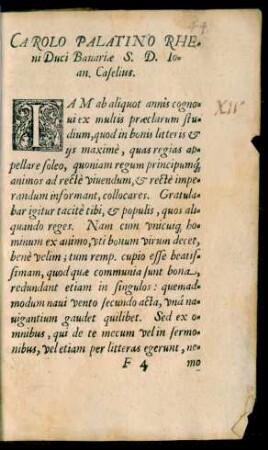 44
CAROLO PALATINO RHE-
ni Duci Bauariæ S. D. Io-
an. Caselius.
XII
IAM ab aliquot annis cogno-
ui ex multis præclarum stu-
dium, quod in bonis litteris &
ijs maxime, quas regias ap-
pellare soleo, quoniam regum principumq́;
animos ad rectè viuendum, & rectè impe-
randum informant, collocares. Gratula-
bar igitur tacitè tibi, & populis, quos ali-
quando reges. Nam cùm vnicuiq; ho-
minum ex animo, vti bonum virum decet,
benè velim; tum remp. cupio esse beatis-
simam, quod quæ communia sunt bona,
redundant etiam in singulos: quemad-
modum naui vento secundo acta, vnà na-
uigantium gaudet quilibet. Sed ex o-
mnibus, qui de te mecum vel in sermo-
nibus, vel etiam per litteras egerunt, ne-
F 4 mo